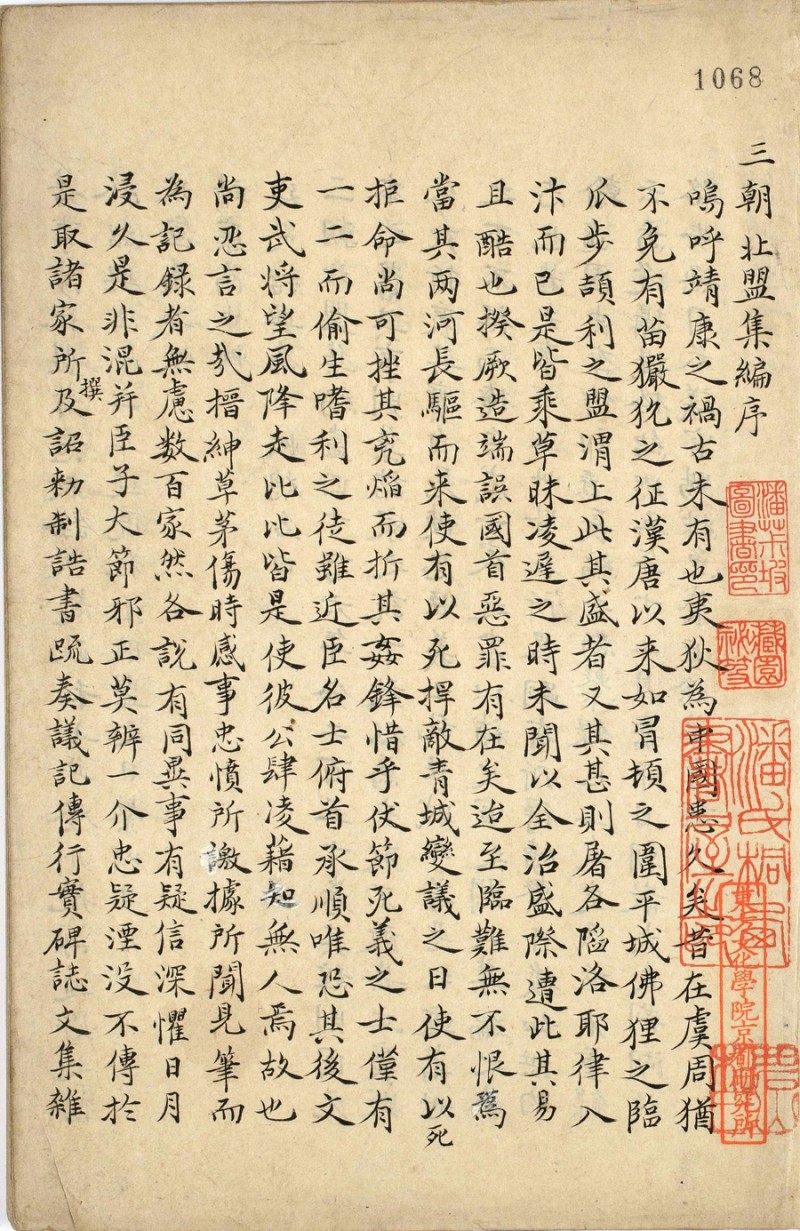 1068
三朝北盟集編序
嗚呼靖康之禍古未有也夷狄為中國患久矣昔在虞周猶
不免有苗玁狁之征漢唐以来如冐頓之圍平城佛狸之臨
瓜步頡利之盟渭上此其盛者又其甚則屠各陷洛耶律入
汴而已是皆乘草昧凌遲之時未聞以全治盛際遭此其易
且酷也揆厥造端誤國首惡罪有在矣迨至臨難無不恨焉
當其两河長驅而来使有以死捍敵青城變議之日使有以死
拒命尚可挫其兇焰而折其姦鋒惜乎伏節死義之士僅有
一二而偷生嗜利之徒雖近臣名士俯首承順唯恐其後文
吏武将望風降走比比皆是使彼公肆凌藉知無人焉故也
尚忍言之㦲搢紳草茅傷時感事忠憤所激據所聞見筆而
為記録者無慮数百家然各說有同異事有疑信深懼日月
浸久是非混并臣子大節邪正莫辨一介忠疑湮没不傳於
是取諸家所撰及詔勅制誥書疏奏議記傳行實碑誌文集雜
潘茮坡
圖書印
藏園
秘笈
東方文化學院京都研究所